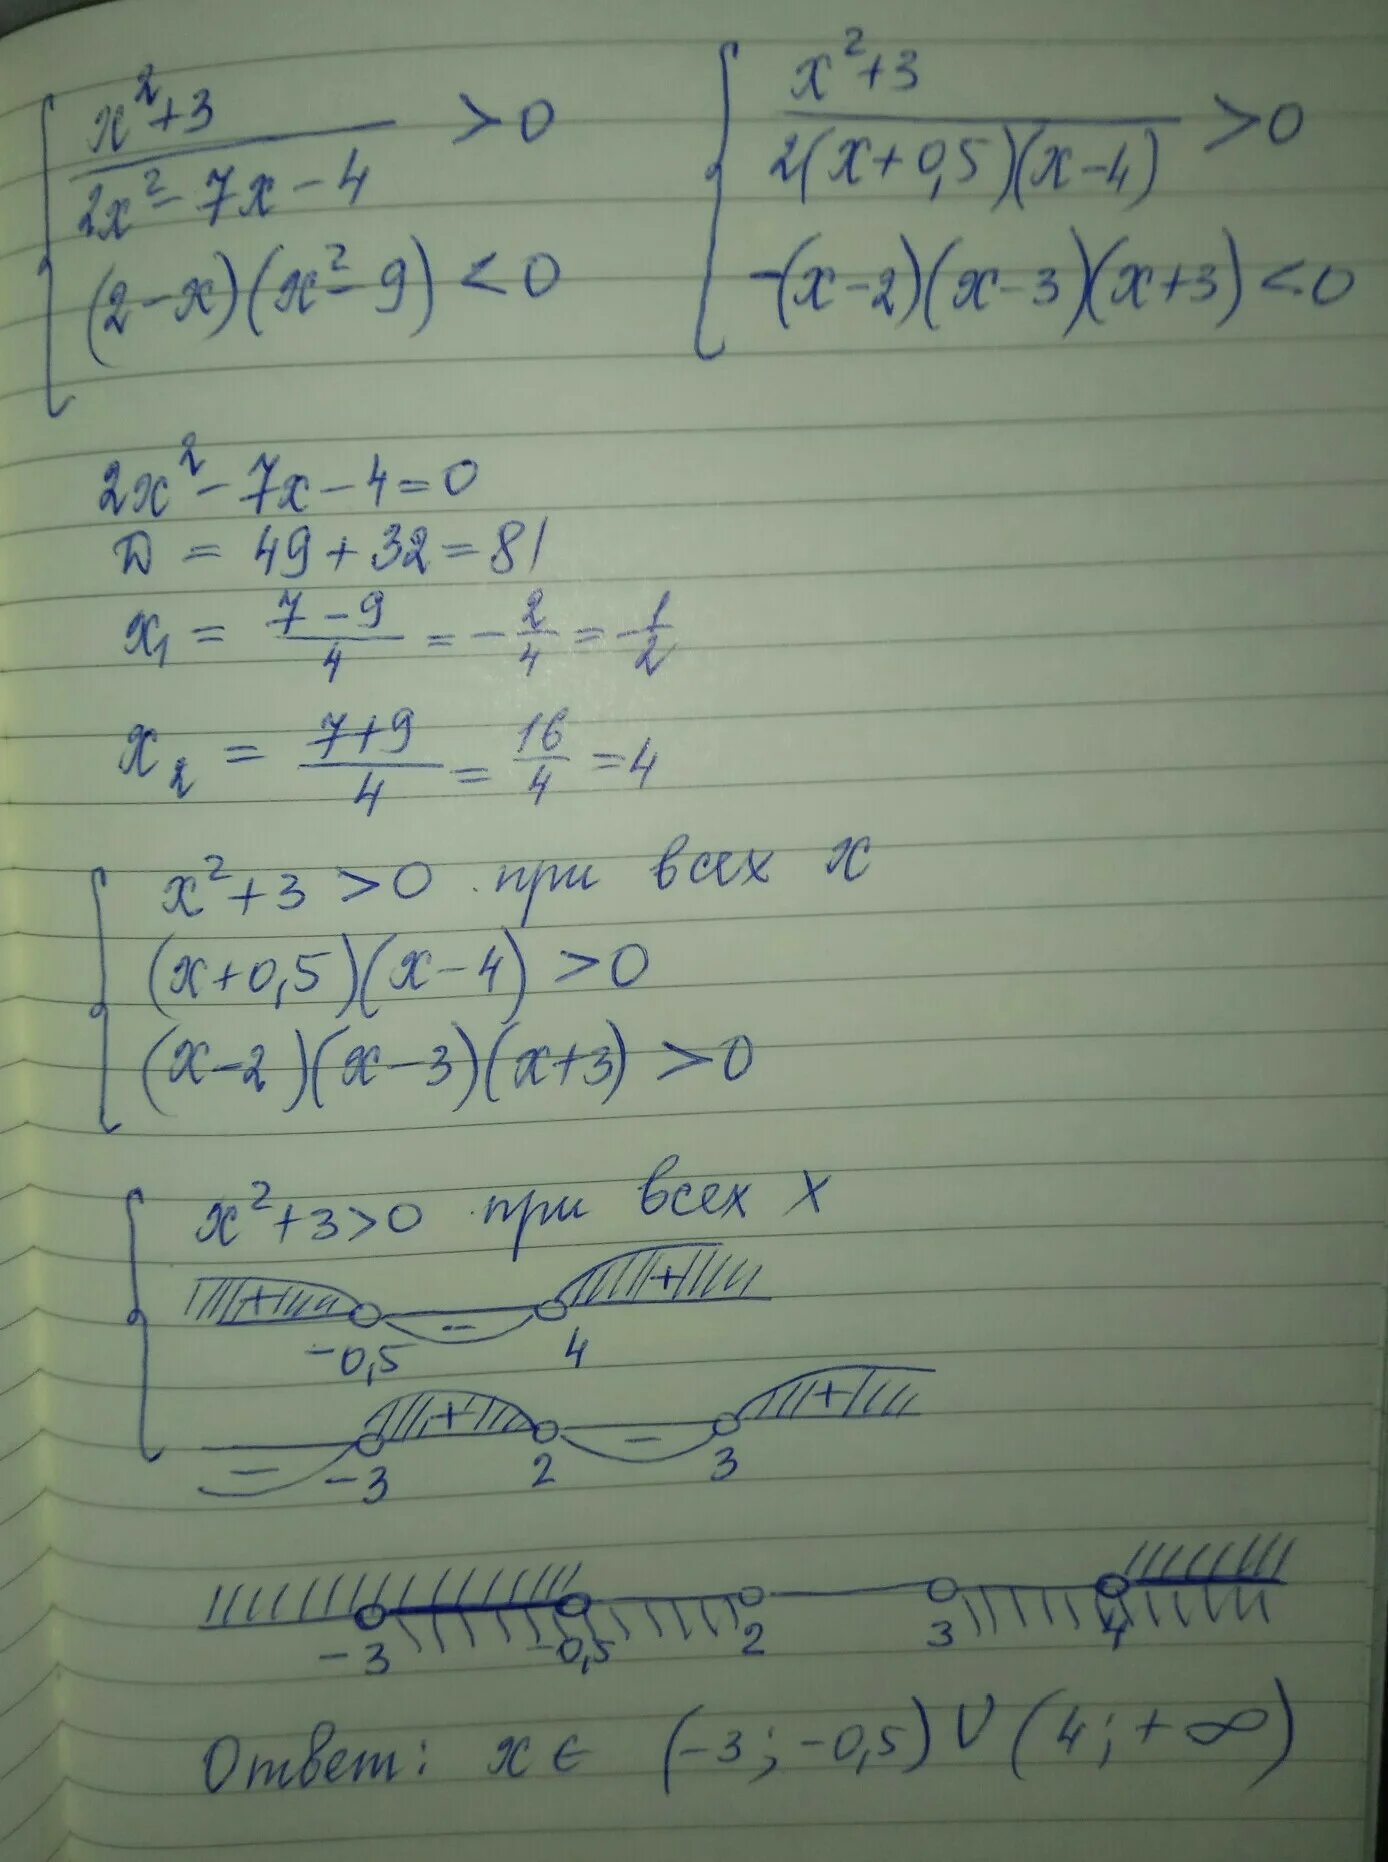 x²+3 / 2x²-7x-4 >0
(2-x)(x²-9)<0
x²+3 / 2(x+0,5)(x-4) >0
-(x-2)(x-3)(x+3)<0
2x²-7x-4=0
D = 49+32=81
x₁ = 7-9 / 4 = -2/4 = -1/2
x₂ = 7+9 / 4 = 16/4 = 4
x²+3>0 при всех x
(x+0,5)(x-4)>0
(x-2)(x-3)(x+3)>0
x²+3>0 при всех x
+ - +
-0,5 4
- + - +
-3 2 3
-3 -0,5 2 3 4
Ответ: x∈ (-3;-0,5)∪(4;+∞)